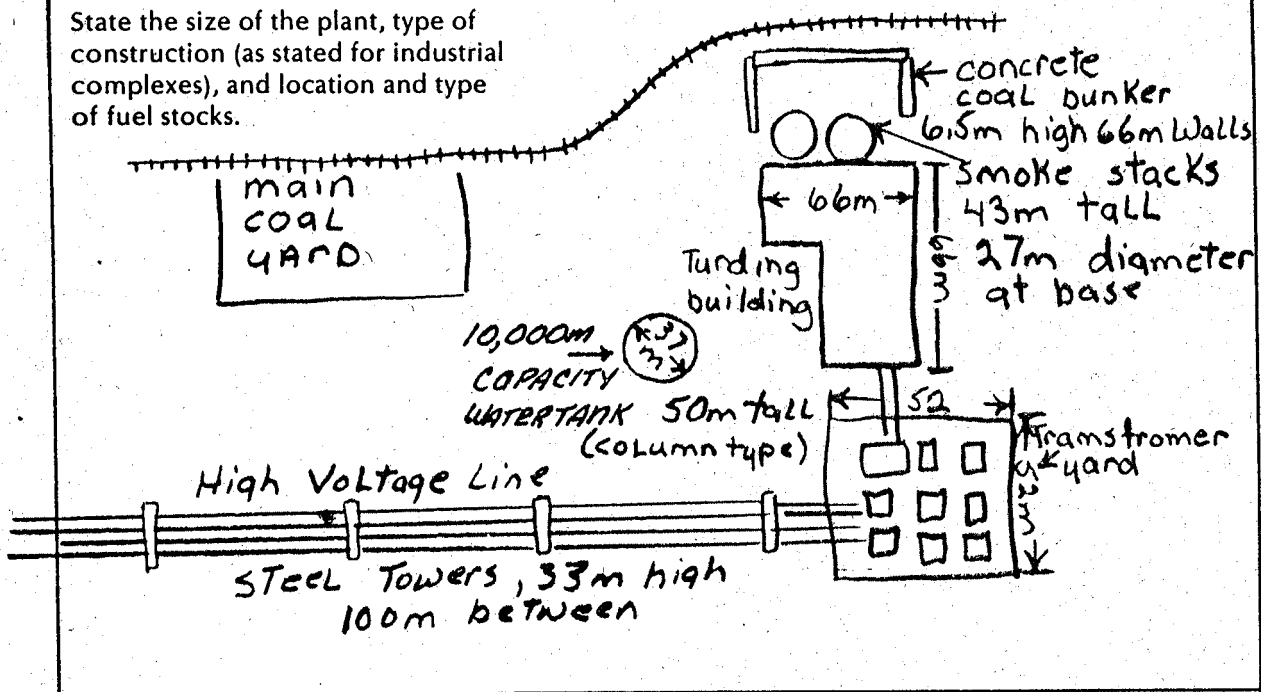 State the size of the plant, type of
construction (as stated for industrial
complexes), and location and type
of fuel stocks.
concrete
coal bunker
6.5m high 66m Walls
Smoke stacks
43m tall
27m diameter
at base
main
coal
yard
66m
Turding
building
10,000m
CAPACITY
WATERTANK 50m tall
(column type)
37
m
52
Tramstromer
yard
52m
High Voltage Line
STEEL Towers, 33m high
100m between